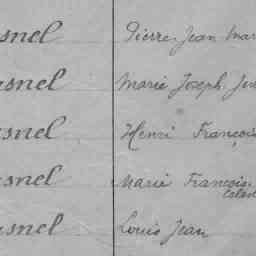 snel Pierre Jean Mar
snel Marie Joseph
snel Henri François
snel Marie François
snel Louis Jean